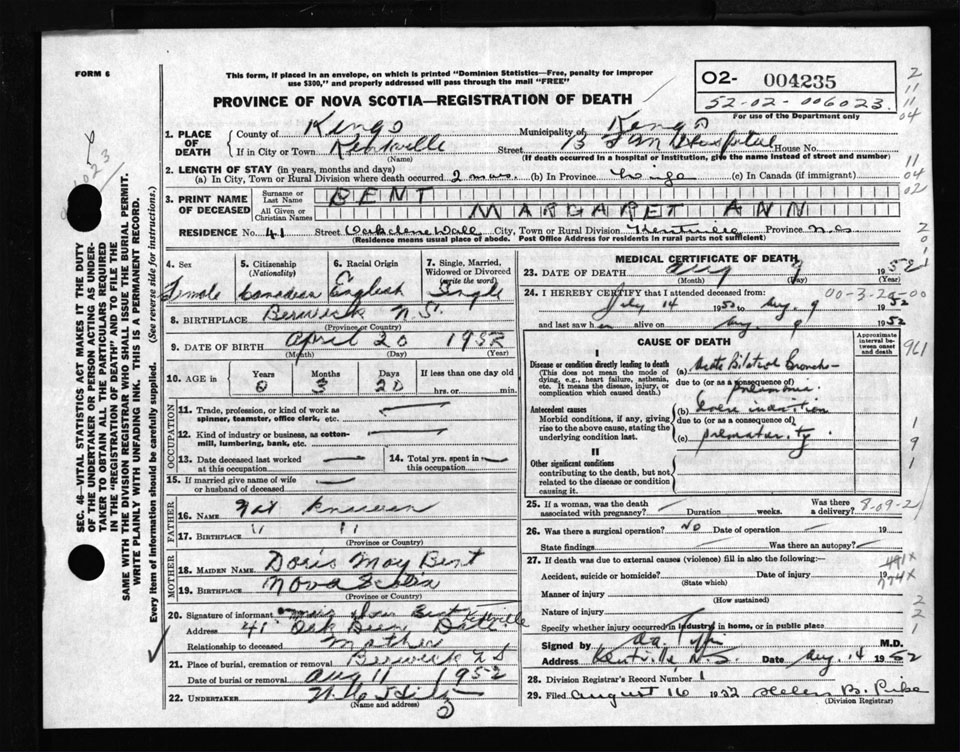 FORM 6
This form, if placed in an envelope, on which is printed "Dominion Statistics—Free, penalty for improper
use $300," and properly addressed will pass through the mail "FREE"
PROVINCE OF NOVA SCOTIA—REGISTRATION OF DEATH
O2- 004235
52-02-006023
For use of the Department only
1. PLACE OF DEATH
County of Kings
Municipality of Kings
If in City or Town Kentville
(Name)
Street B F M Hospital House No.
(If death occurred in a hospital or institution, give the name instead of street and number)
2. LENGTH OF STAY (in years, months and days)
(a) In City, Town or Rural Division where death occurred 2 mos. (b) In Province (c) In Canada (if immigrant)
3. PRINT NAME OF DECEASED
Surname or Last Name BENT
All Given or Christian Names MARGARET ANN
RESIDENCE No. 41 Street City, Town or Rural Division Province N.S
(Residence means usual place of abode. Post Office Address for residents in rural parts not sufficient)
4. Sex
Female
5. Citizenship (Nationality)
Canadian
6. Racial Origin
English
7. Single, Married, Widowed or Divorced (write the word)
Single
8. BIRTHPLACE Berwick N.S.
(Province or Country)
9. DATE OF BIRTH April 20 1952
(Month) (Day) (Year)
10. AGE in
Years Months Days If less than one day old
0 3 20 hrs. or min.
OCCUPATION
11. Trade, profession, or kind of work as spinner, teamster, office clerk, etc.
12. Kind of industry or business, as cotton-mill, lumbering, bank, etc.
13. Date deceased last worked at this occupation
14. Total yrs. spent in this occupation
15. If married give name of wife or husband of deceased
FATHER
16. NAME Not known
17. BIRTHPLACE " "
(Province or Country)
MOTHER
18. MAIDEN NAME Doris May Bent
19. BIRTHPLACE Nova Scotia
(Province or Country)
20. Signature of informant Bent
Address 41 Kentville
Relationship to deceased Mother
21. Place of burial, cremation or removal Berwick N S
Date of burial or removal Aug 11 1952
22. UNDERTAKER
(Name and address)
MEDICAL CERTIFICATE OF DEATH
23. DATE OF DEATH Aug 9 1952
(Month) (Day) (Year)
24. I HEREBY CERTIFY that I attended deceased from:
00-3-20-00
July 14 1952 to Aug. 9 1952
and last saw h er alive on Aug 9 1952
CAUSE OF DEATH
Approximate interval between onset and death
I
Disease or condition directly leading to death
(This does not mean the mode of dying, e.g., heart failure, asthenia, etc. It means the disease, injury, or complication which caused death.)
(a) Acute Bilateral Broncho-
due to (or as a consequence of)
pneumonia
Antecedent causes
Morbid conditions, if any, giving rise to the above cause, stating the underlying condition last.
(b)
due to (or as a consequence of)
(c) prematurity
II
Other significant conditions
contributing to the death, but not related to the disease or condition causing it.
25. If a woman, was the death associated with pregnancy? Duration weeks. Was there a delivery? 8-09-2
26. Was there a surgical operation? No Date of operation 19
State findings Was there an autopsy?
27. If death was due to external causes (violence) fill in also the following:
Accident, suicide or homicide? Date of injury
(State which)
Manner of injury
(How sustained)
Nature of injury
Specify whether injury occurred in industry, in home, or in public place
Signed by M.D.
Address Kentville, N.S. Date Aug. 14 1952
28. Division Registrar's Record Number 1
29. Filed August 16 1952 Helen B. Pike
(Division Registrar)
SEC. 46—VITAL STATISTICS ACT MAKES IT THE DUTY
OF THE UNDERTAKER OR PERSON ACTING AS UNDER-
TAKER TO OBTAIN ALL THE PARTICULARS REQUIRED
IN THE "REGISTRATION OF DEATH" AND TO FILE THE
SAME WITH THE DIVISION REGISTRAR WHO SHALL ISSUE THE BURIAL PERMIT.
WRITE PLAINLY WITH UNFADING INK. THIS IS A PERMANENT RECORD.
Every item of Information should be carefully supplied. (See reverse side for instructions.)